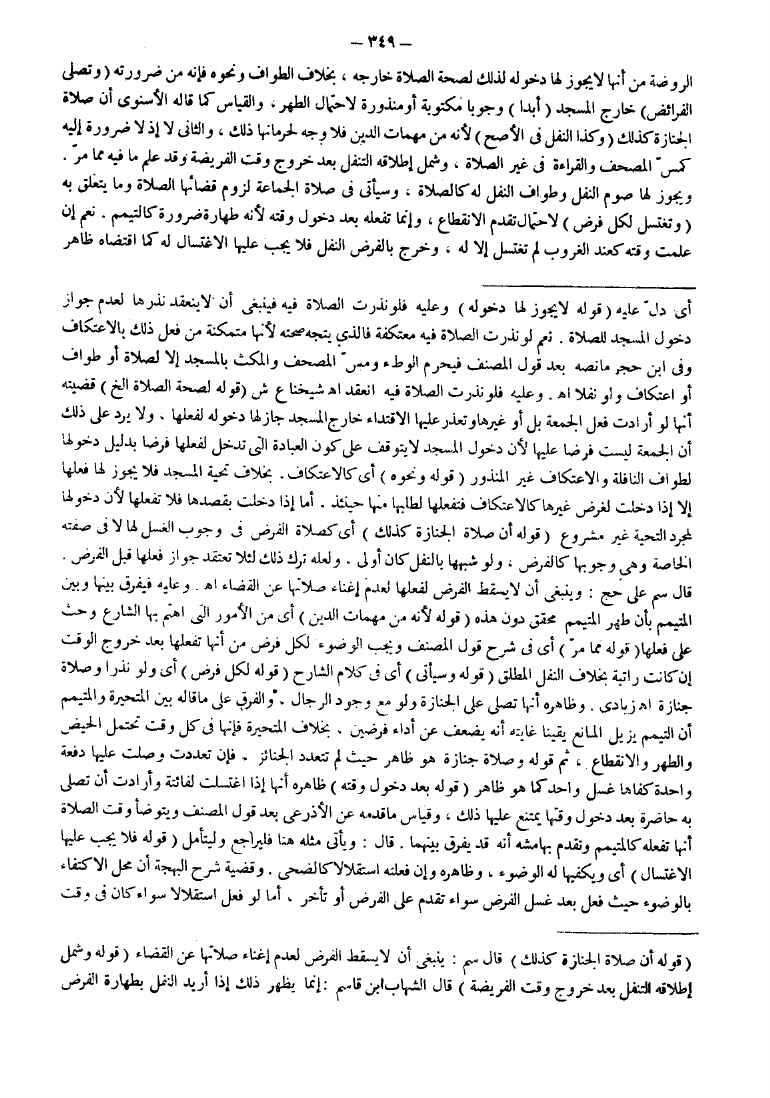 — ٣٤٩ —
الروضة من أنها لايجوز لها دخوله لذلك لصحة الصلاة خارجه ، بخلاف الطواف ونحوه فإنه من ضرورته ( وتصلى
الفرائض) خارج المسجد ( أبدا ) وجوبا مكتوبة أو منذورة لاحتمال الطهر ، والقياس كما قاله الأسنوى أن صلاة
الجنازة كذلك ( وكذا النفل فى الأصح ) لأنه من مهمات الدين فلا وجه لحرمانها ذلك ، والثانى لا إذ لا ضرورة إليه
كمسّ المصحف والقراءة فى غير الصلاة ، وشمل إطلاقه التنفل بعد خروج وقت الفريضة وقد علم ما فيه مما مرّ .
ويجوز لها صوم النفل وطواف النفل له كالصلاة ، وسيأتى فى صلاة الجماعة لزوم قضائها الصلاة وما يتعلق به
( وتغتسل لكل فرض ) لاحتمال تقدم الانقطاع ، وإنما تفعله بعد دخول وقته لأنه طهارة ضرورة كالتيمم . نعم إن
علمت وقته كعند الغروب لم تغتسل إلا له ، وخرج بالفرض النفل فلا يجب عليها الاغتسال له كما اقتضاه ظاهر
أى دلّ عليه ( قوله لايجوز لها دخوله ) وعليه فلو نذرت الصلاة فيه فينبغى أن لاينعقد نذرها لعدم جواز
دخول المسجد للصلاة . نعم لو نذرت الصلاة فيه معتكفة فالذي يتجه صحته لأنها متمكنة من فعل ذلك بالاعتكاف
وفى ابن حجر مانصه بعد قول المصنف فيحرم الوطء ومسّ المصحف والمكث بالمسجد إلا لصلاة أو طواف
أو اعتكاف ولو نفلا اه . وعليه فلو نذرت الصلاة فيه انعقد اه شيخنا ع ش (قوله لصحة الصلاة الخ ) قضيته
أنها لو أرادت فعل الجمعة بل أو غيرها وتعذر عليها الاقتداء خارج المسجد جاز لها دخوله لفعلها . ولا يرد على ذلك
أن الجمعة ليست فرضا عليها لأن دخول المسجد لايتوقف على كون العبادة التى تدخل لفعلها فرضا بدليل دخولها
لطواف النافلة والاعتكاف غير المنذور ( قوله ونحوه ) أى كالاعتكاف . بخلاف تحية المسجد فلا يجوز لها فعلها
إلا إذا دخلت لغرض غيرها كالاعتكاف فتفعلها لطلبها منها حينئذ . أما إذا دخلت بقصدها فلا تفعلها لأن دخولها
لمجرد التحية غير مشروع ( قوله أن صلاة الجنازة كذلك ) أى كصلاة الفرض فى وجوب الغسل لها لا فى صفته
الخاصة وهى وجوبها كالفرض ، ولو شبهها بالنفل كان أولى . ولعله ترك ذلك لئلا تعتقد جواز فعلها قبل الفرض .
قال سم على حج : وينبغى أن لايسقط الفرض لفعلها لعدم إغناء صلاتها عن القضاء اه . وعليه فيفرق بينها وبين
المتيمم بأن طهر المتيمم محقق دون هذه ( قوله لأنه من مهمات الدين ) أى من الأمور التى اهتم بها الشارع وحث
على فعلها( قوله مما مرّ ) أى فى شرح قول المصنف ويجب الوضوء لكل فرض من أنها تفعلها بعد خروج الوقت
إن كانت راتبة بخلاف النفل المطلق ( قوله وسيأتى ) أى فى كلام الشارح ( قوله لكل فرض ) أى ولو نذرا وصلاة
جنازة اه زيادى . وظاهره أنها تصلى على الجنازة ولو مع وجود الرجال . والفرق على ماقاله بين المتحيرة والمتيمم
أن التيمم يزيل المانع يقينا غايته أنه يضعف عن أداء فرضين . بخلاف المتحيرة فإنها فى كل وقت تحتمل الحيض
والطهر والانقطاع ، ثم قوله وصلاة جنازة هو ظاهر حيث لم تتعدد الجنائز . فإن تعددت وصلت عليها دفعة
واحدة كفاها غسل واحد كما هو ظاهر ( قوله بعد دخول وقته ) ظاهره أنها إذا اغتسلت لفائتة وأرادت أن تصلى
به حاضرة بعد دخول وقتها يمتنع عليها ذلك ، وقياس ماقدمه عن الأذرعى بعد قول المصنف ويتوضأ وقت الصلاة
أنها تفعله كالمتيمم وتقدم بهامشه أنه قد يفرق بينهما . قال : ويأتى مثله هنا فليراجع وليتأمل ( قوله فلا يجب عليها
الاغتسال ) أى ويكفيها له الوضوء ، وظاهره وإن فعلته استقلالا كالضحى . وقضية شرح البهجة أن محل الاكتفاء
بالوضوء حيث فعل بعد غسل الفرض سواء تقدم على الفرض أو تأخر ، أما لو فعل استقلالا سواء كان فى وقت
( قوله أن صلاة الجنازة كذلك ) قال سم : ينبغى أن لايسقط الفرض لعدم إغناء صلاتها عن القضاء ( قوله وشمل
إطلاقه التنفل بعد خروج وقت الفريضة ) قال الشهاب ابن قاسم : إنما يظهر ذلك إذا أريد النفل بطهارة الفرض